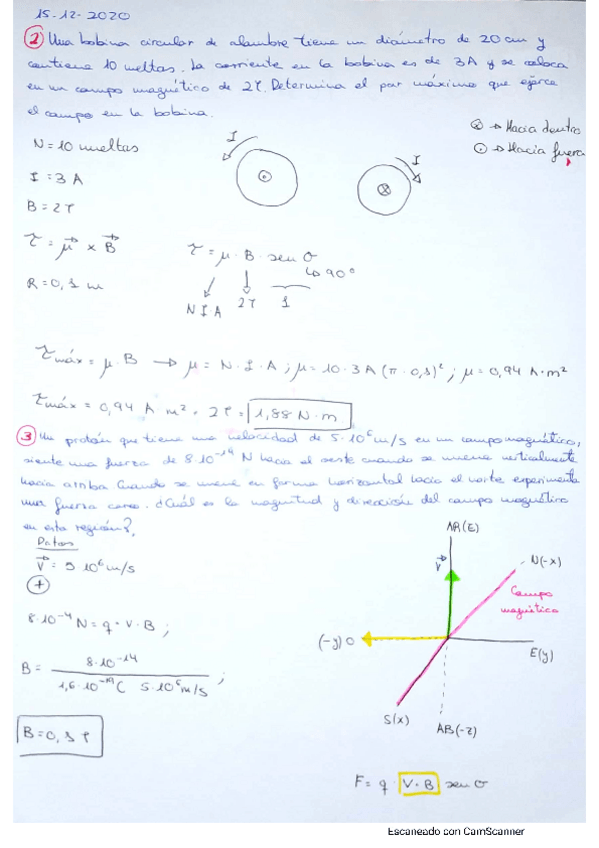 15-12-2020
2 Una bobina circular de alambre tiene un diámetro de 20 cm y
contiene 10 vueltas. La corriente en la bobina es de 3A y se coloca
en un campo magnético de 2T. Determina el par máximo que ejerce
el campo en la bobina.
⊗ → Hacia dentro
⊙ → Hacia fuera
N = 10 vueltas
I I
I = 3 A
B = 2T
τ = μ x B
τ = μ · B · sen σ
↳ 90°
R = 0,1 m
N I A 2T 1
τmáx = μ · B → μ = N · I · A ; μ = 10 · 3 A (π · 0,1)² ; μ = 0,94 A·m²
τmáx = 0,94 A m² · 2T = 1,88 N·m
3 Un protón que tiene una velocidad de 5·10⁶ m/s en un campo magnético,
siente una fuerza de 8·10⁻¹⁴ N hacia el oeste cuando se mueve verticalmente
hacia arriba. Cuando se mueve en forma horizontal hacia el norte experimenta
una fuerza cero. ¿Cuál es la magnitud y dirección del campo magnético
en esta región?
Datos
V = 5 10⁶ m/s
+
AR(E)
V
N(-x)
Campo
magnético
8·10⁻⁴ N = q · V · B ;
(-y) O
E(y)
B = 8·10⁻¹⁴ / 1,6·10⁻¹⁹ C 5·10⁶ m/s ;
S(x)
AB(-z)
B = 0,1 T
F = q · V · B sen σ
Escaneado con CamScanner